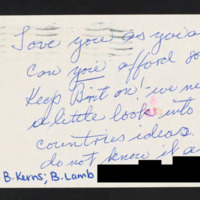 Love you as you
Can you afford so
Keep Birt on! - we ne
a little look into
countries ideas.
do not know if a
B. Kerns; B. Lamb